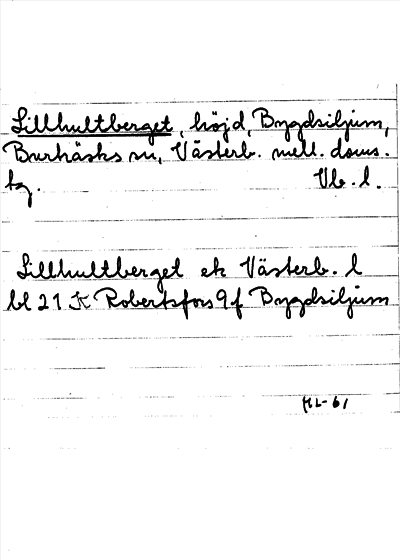 Lillhultberget, höjd, Bygdsiljum,
Burträsks sn, Västerb. mell. doms.
tg. Vb. l.
Lillhultberget ek Västerb. l
bl 21 K Robertsfors 9f Bygdsiljum
HL-61